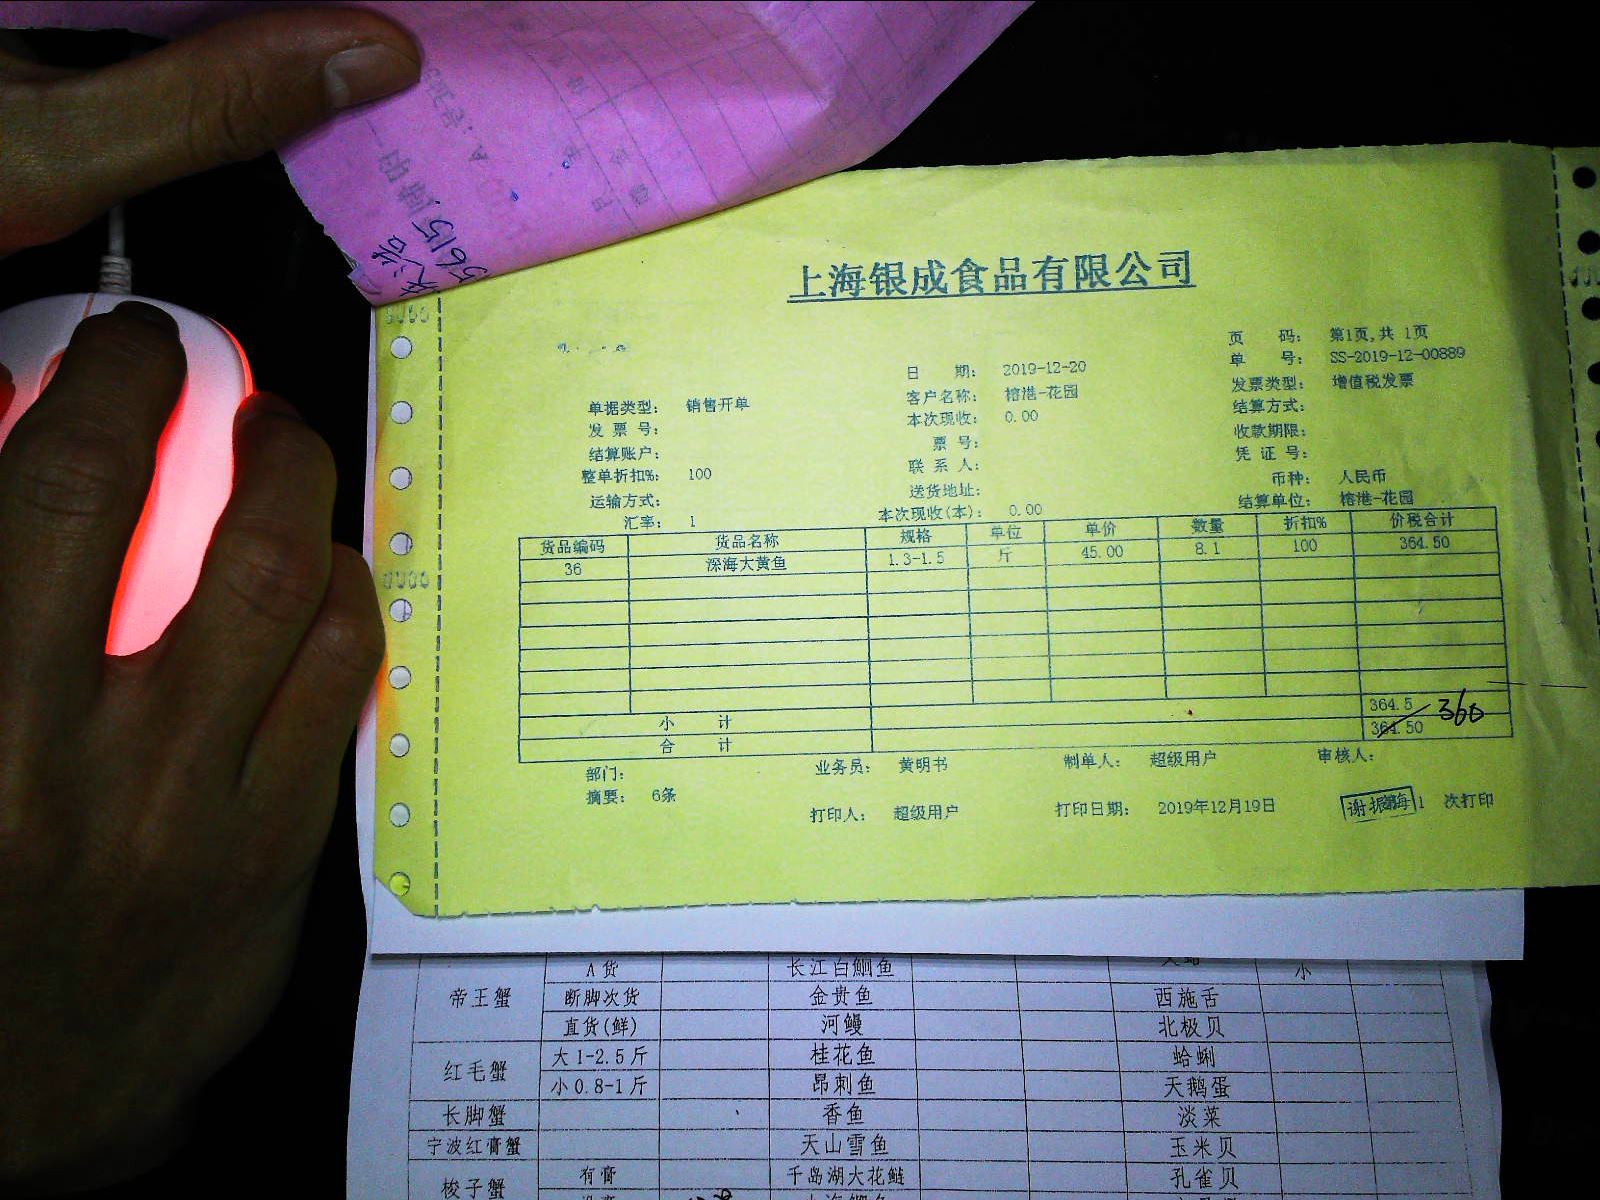 5615
上海银成食品有限公司
页 码: 第1页,共 1页
日 期: 2019-12-20 单 号: SS-2019-12-00889
单据类型: 销售开单 客户名称: 榕港-花园 发票类型: 增值税发票
发 票 号: 本次现收: 0.00 结算方式:
结算账户: 票 号: 收款期限:
整单折扣%: 100 联 系 人: 凭 证 号:
运输方式: 送货地址: 币种: 人民币
汇率: 1 本次现收(本): 0.00 结算单位: 榕港-花园
货品编码 货品名称 规格 单位 单价 数量 折扣% 价税合计
36 深海大黄鱼 1.3-1.5 斤 45.00 8.1 100 364.50
小 计 364.5 360
合 计 364.50
部门: 业务员: 黄明书 制单人: 超级用户 审核人:
摘要: 6条
打印人: 超级用户 打印日期: 2019年12月19日 1 次打印
A货 长江白鮰鱼 小
帝王蟹 断脚次货 金贵鱼 西施舌
直货(鲜) 河鳗 北极贝
红毛蟹 大1-2.5斤 桂花鱼 蛤蜊
小0.8-1斤 昂刺鱼 天鹅蛋
长脚蟹 香鱼 淡菜
宁波红膏蟹 天山雪鱼 玉米贝
梭子蟹 有膏 千岛湖大花鲢 孔雀贝